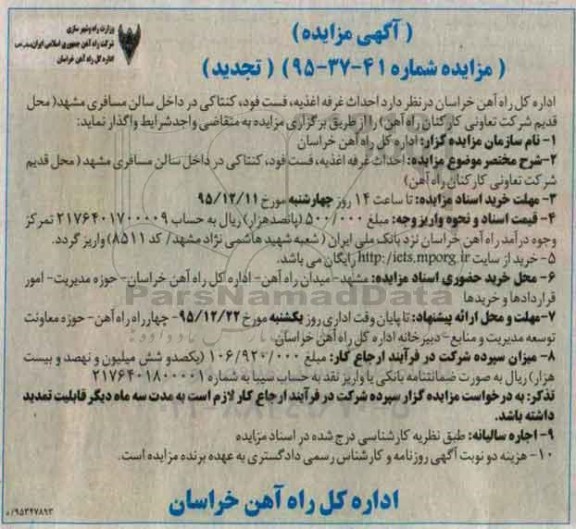 وزارت راه و شهرسازی
شرکت راه آهن جمهوری اسلامی ایران
اداره کل راه آهن خراسان
( آگهی مزایده )
( مزایده شماره ۴۱-۳۷-۹۵ ) ( تجدید )
اداره کل راه آهن خراسان در نظر دارد احداث غرفه اغذیه، فست فود، کنتاکی در داخل سالن مسافری مشهد( محل
قدیم شرکت تعاونی کارکنان راه آهن ) را از طریق برگزاری مزایده به متقاضی واجد شرایط واگذار نماید:
۱- نام سازمان مزایده گزار: اداره کل راه آهن خراسان
۲-شرح مختصر موضوع مزایده: احداث غرفه اغذیه، فست فود، کنتاکی در داخل سالن مسافری مشهد ( محل قدیم
شرکت تعاونی کارکنان راه آهن)
۳- مهلت خرید اسناد مزایده: تا ساعت ۱۴ روز چهارشنبه مورخ ۹۵/۱۲/۱۱
۴- قیمت اسناد و نحوه واریز وجه: مبلغ ۵۰۰/۰۰۰ (پانصدهزار) ریال به حساب ۲۱۷۶۴۰۱۷۰۰۰۰۹ تمرکز
وجوه درآمد راه آهن خراسان نزد بانک ملی ایران ( شعبه شهید هاشمی نژاد مشهد/ کد ۸۵۱۱) واریز گردد.
۵- خرید از سایت http:/iets.mporg.ir رایگان می باشد.
۶- محل خرید حضوری اسناد مزایده: مشهد-میدان راه آهن- اداره کل راه آهن خراسان- حوزه مدیریت- امور
قراردادها و خریدها
ParsNamadData
۷-مهلت و محل ارائه پیشنهاد: تا پایان وقت اداری روز یکشنبه مورخ ۹۵/۱۲/۲۲- چهارراه راه آهن- حوزه معاونت
توسعه مدیریت و منابع- دبیرخانه اداره کل راه آهن خراسان.
۸- میزان سپرده شرکت در فرآیند ارجاع کار: مبلغ ۱۰۶/۹۲۰/۰۰۰ (یکصدو شش میلیون و نهصد و بیست
هزار) ریال به صورت ضمانتنامه بانکی یا واریز نقد به حساب سیبا به شماره ۲۱۷۶۴۰۱۸۰۰۰۰۱
تذکر: به درخواست مزایده گزار سپرده شرکت در فرآیند ارجاع کار لازم است به مدت سه ماه دیگر قابلیت تمدید
داشته باشد.
۹- اجاره سالیانه: طبق نظریه کارشناسی درج شده در اسناد مزایده
۱۰- هزینه دو نوبت آگهی روزنامه و کارشناس رسمی دادگستری به عهده برنده مزایده است.
اداره کل راه آهن خراسان